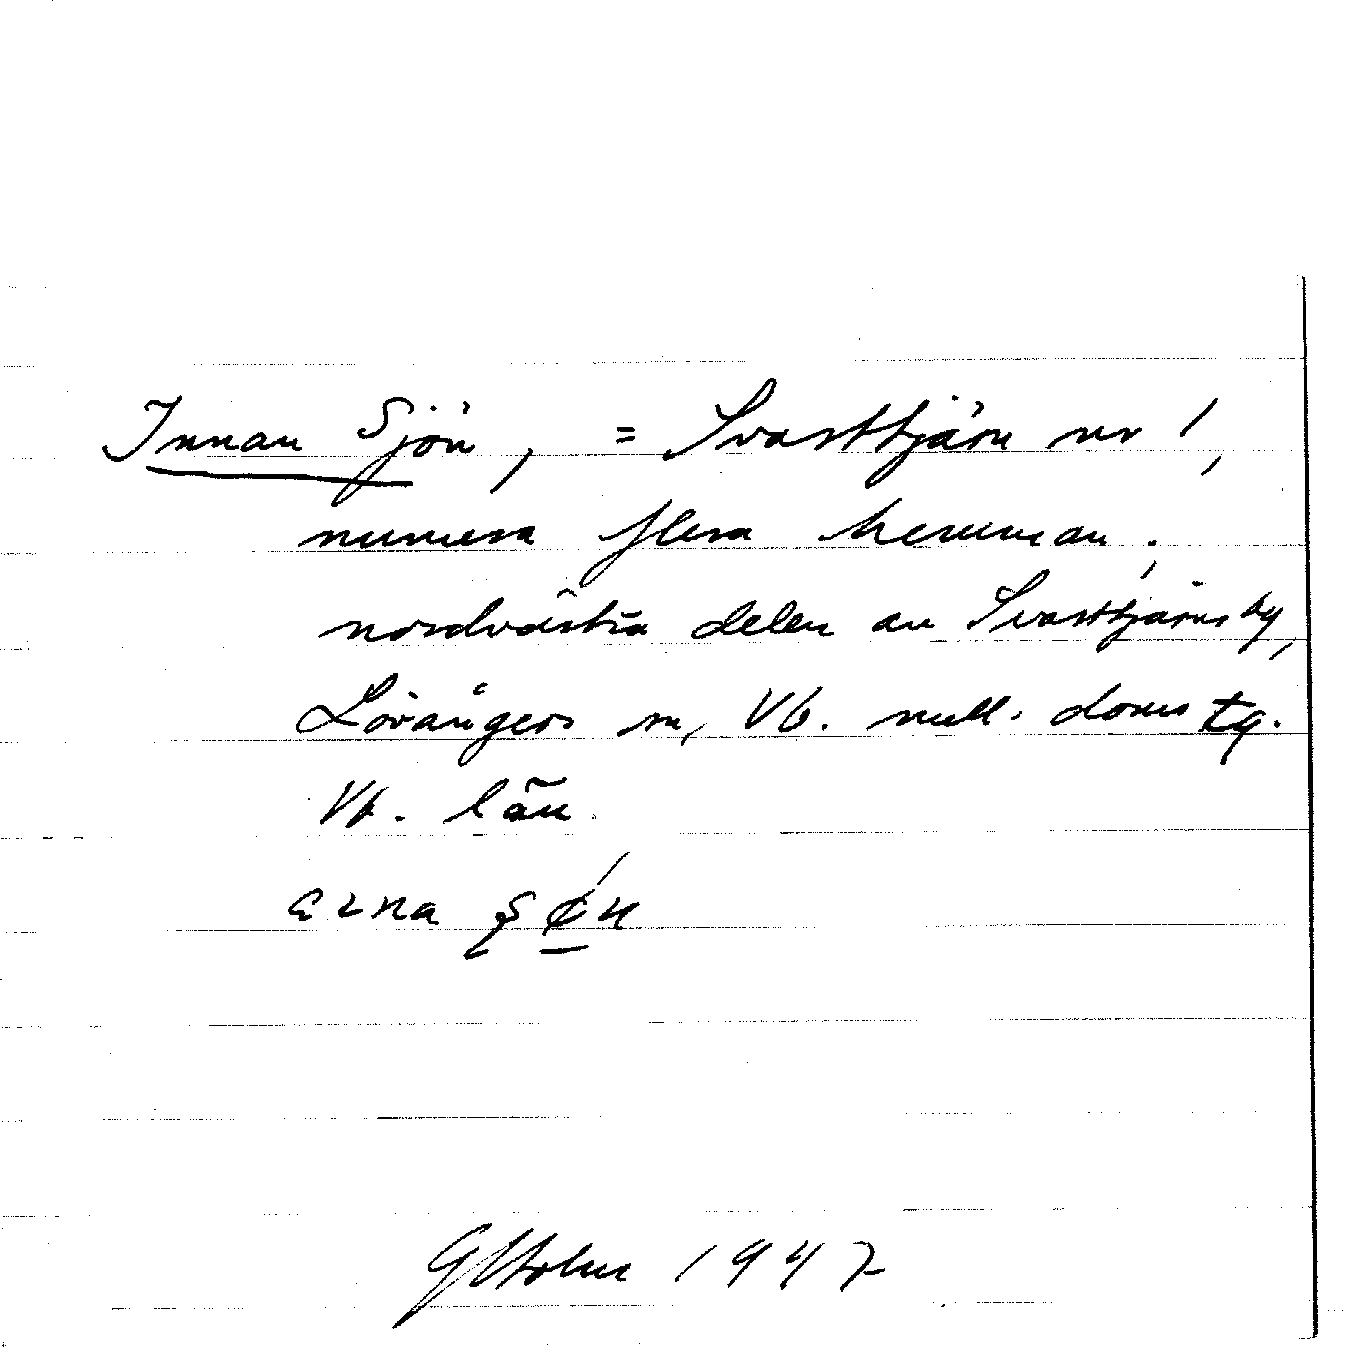 Innan Sjön, = Svarttjärn nr 1,
numera flera hemman;
nordvästra delen av Svarttjärns by,
Lövångers sn, Vb. mell. doms tg.
Vb. län.
GHolm 1947